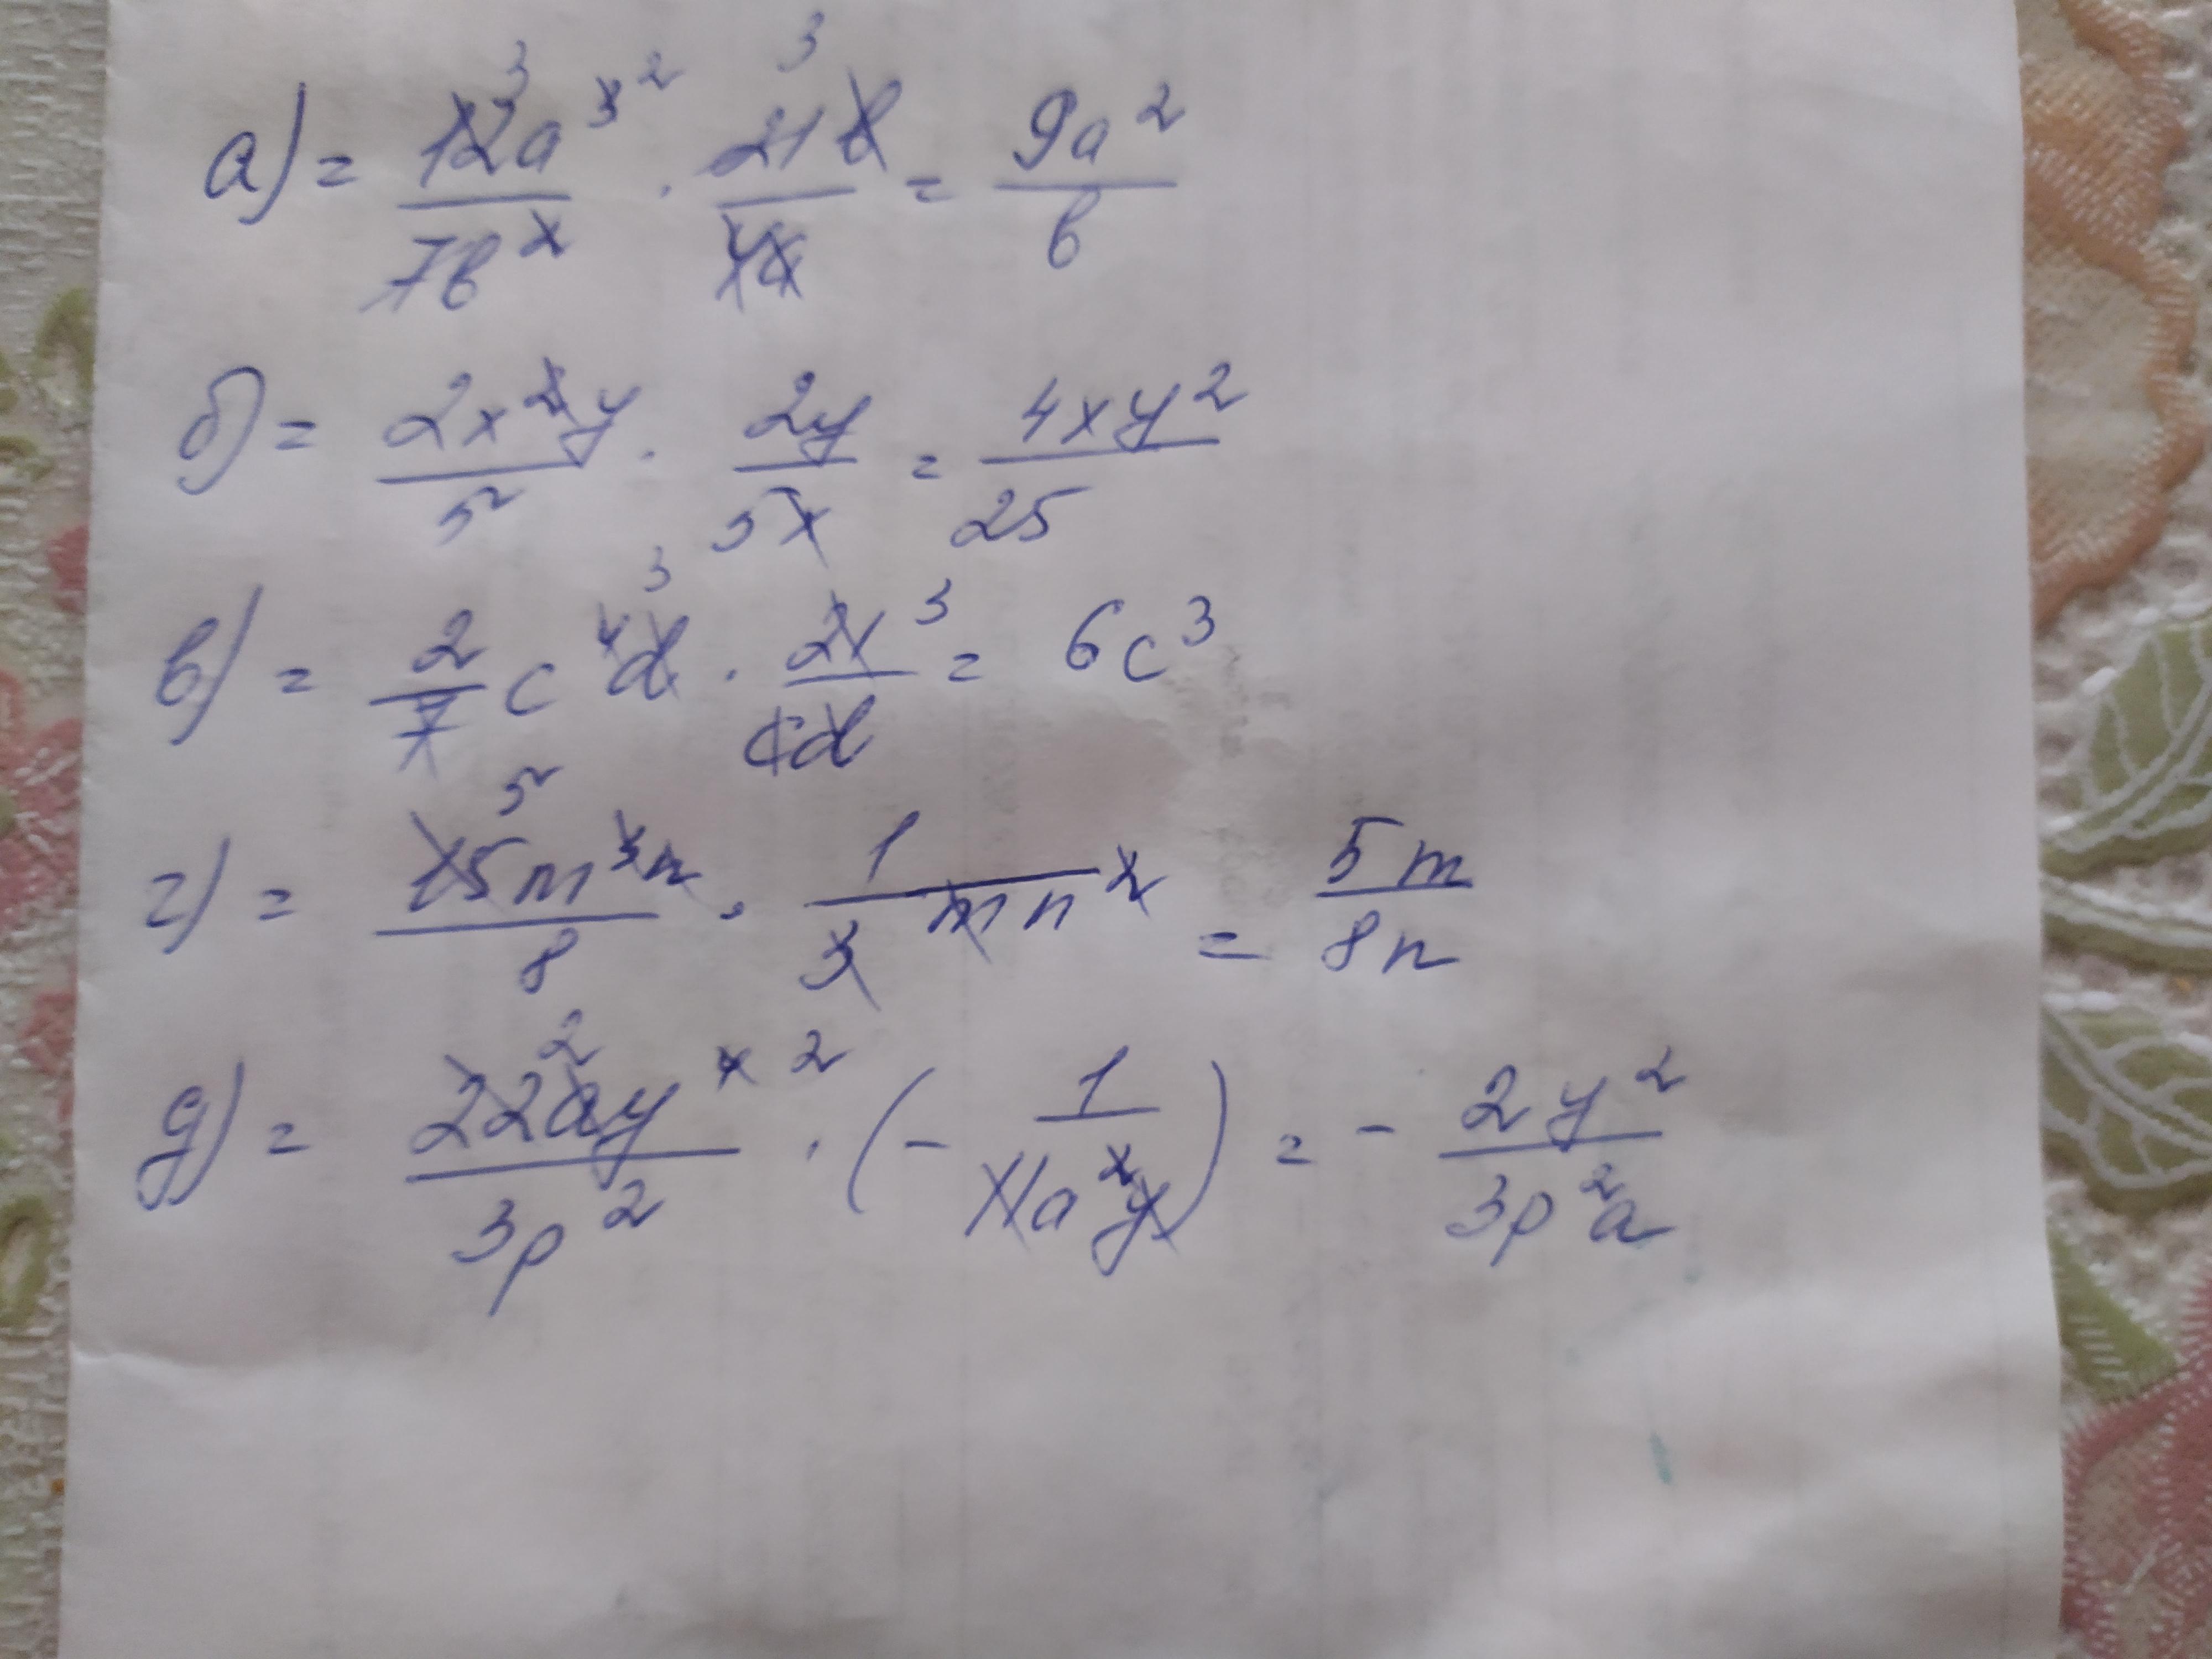 а) = 12a³/7b² · 21b/4a = 9a²/b
б) = 2x²y/5 · 2y/5x = 4xy²/25
в) = 2/7 c⁴d · 21/cd = 6c³
г) = 15m²n/8 · 1/3mn² = 5m/8n
д) = 22ay⁴/3p² · (- 1/11a²y²) = - 2y²/3p²a